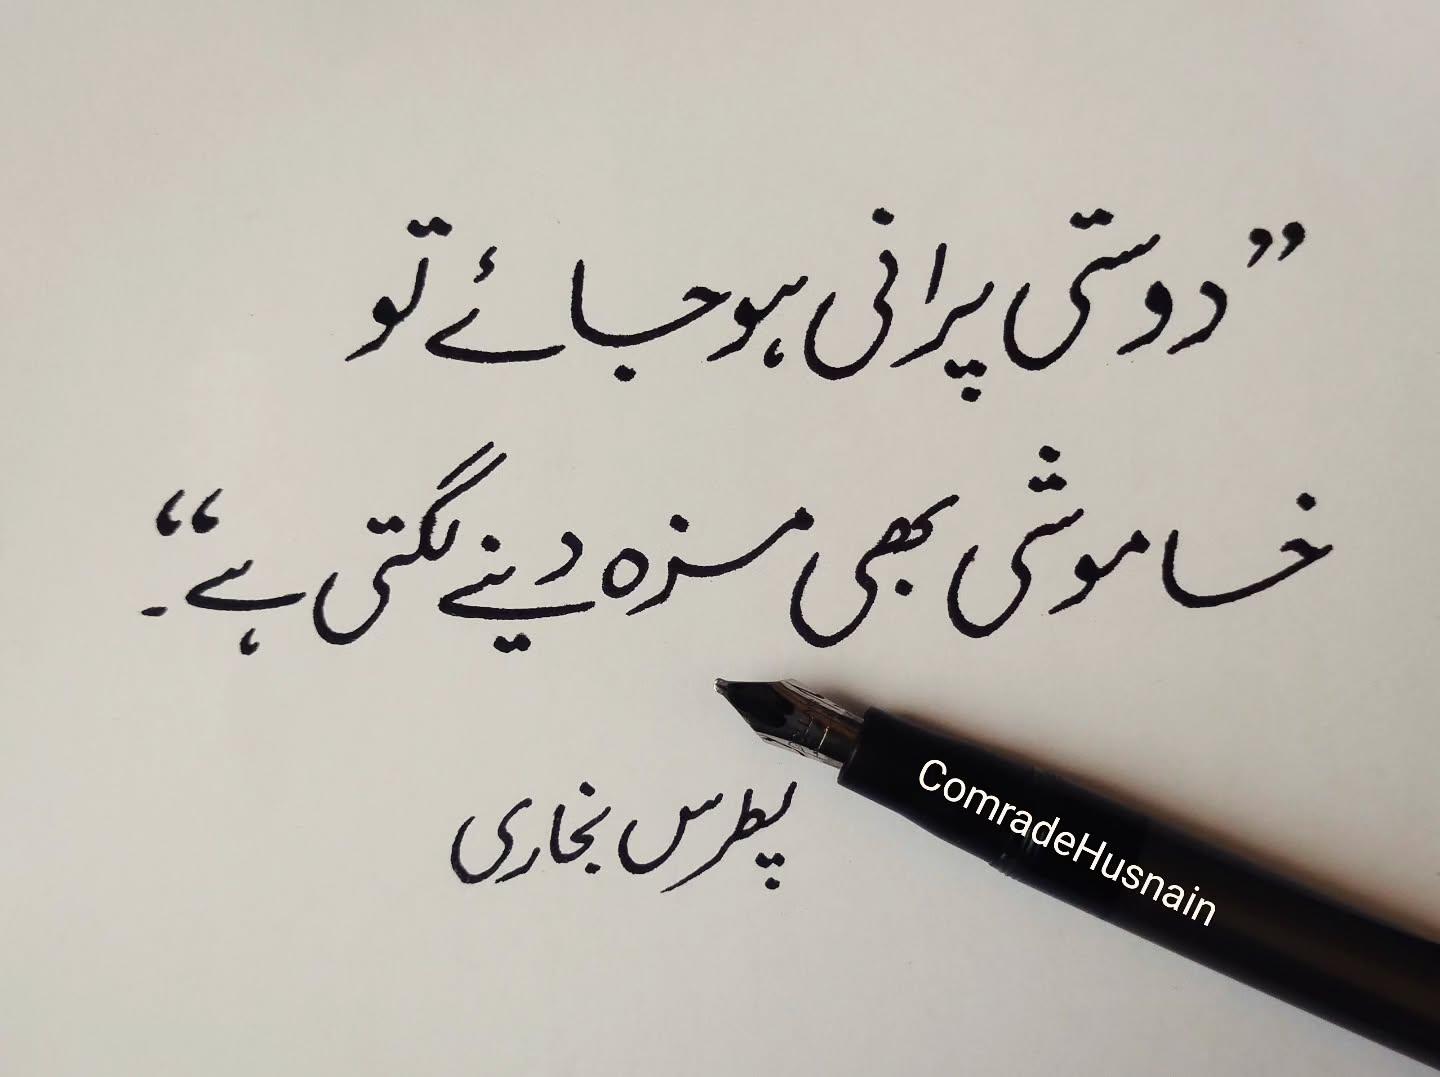 ”دوستی پرانی ہوجائے تو
خاموشی بھی مزہ دینے لگتی ہے“۔
پطرس بخاری
ComradeHusnain